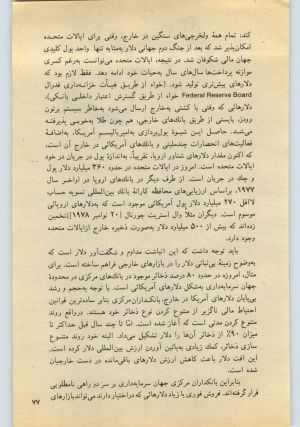 کند: تمام همهٔ ولخرجی‌های سنگین در خارج، وقتی برای ایالات متحده
امکان‌پذیر شد که بعد از جنگ دوم جهانی دلار به‌مثابه تنها واحد پول کلیدی
جهان مالی شکوفان شد. در نتیجه، ایالات متحده می‌توانست به‌رغم کسری
موازنه پرداخت‌ها سال‌های سال به‌حیات خود ادامه دهد. فقط لازم بود که
دلارهای بیشتری تولید شود. (خواه از طریق هیأت خزانه‌داری فدرال
Federal Reserve Board خواه از طریق گسترش اعتبار داخلی بانکی)،
دلارهائی که وقتی با کشتی به‌خارج ارسال می‌شود به‌خاطر سیستم برتون
وودز، بایستی از طریق بانک‌های خارجی، هم چون طلا به‌خوبی پذیرفته
می‌شد. حاصل این شیوهٔ پول‌پردازی به‌امپریالیسم آمریکا، به‌اضافهٔ
فعالیت‌های انحصارات چندملیتی و بانک‌های آمریکائی در خارج آن است،
که اکنون مقدار دلارهای شناور اروپا، تقریباً، به‌اندازهٔ پول در جریان در خود
ایالات متحده است. امروز در ایالات متحده در حدود ۳۶۰ میلیارد دلار پول
و چک در جریان است. از طرف دیگر در بانک‌های اروپا در اواخر سال
۱۹۷۷، براساس ارزیابی‌های محافظه کارانهٔ بانک بین‌المللی تسویه حساب
لااقل ۴۷۰ میلیارد دلار پول آمریکائی موجود است که به‌دلارهای اروپائی
موسوم است. دیگران مثلاً وال استریت جورنال [۲۰ نوامبر ۱۹۷۸] تخمین
زده‌اند که بیش از ۵۰۰ میلیارد دلار به‌صورت ذخیره خارج از ایالات متحده
وجود دارد.
باید توجه داشت که این انباشت مداوم و شگفت‌آور دلار است که
به‌وضوح زمینهٔ بی‌ثباتی دلار را در بازارهای خارجی فراهم ساخته است. برای
مثال، امروزه در حدود ۸۰ درصد ذخائر موجود در بانک‌های مرکزی در محدودهٔ
جهان سرمایه‌داری به‌شکل دلارهای آمریکائی است. با توجه به‌حجم و رشد
بی‌پایان دلارهای آمریکا در خارج، بانک‌داران مرکزی بنابر ساده‌ترین قوانین
احتیاط مالی ناگزیر از متنوع کردن نوع ذخائر خود هستند. درواقع روند
متنوع کردن مدتی است که آغاز شده است. امّا تا چند سال قبل حداکثر تا
میزان ۹۰٪ از ذخائر آن‌ها را دلار تشکیل می‌داد. البته خود روند متنوع
سازی ذخائر، کمک زیادی به‌پائین آوردن ارزش بین‌المللی دلار کرده است.
این افت دلار باعث کاهش ارزش دلارهای باقی‌مانده در دست خارجیان
شده است.
بنابراین بانکداران مرکزی جهان سرمایه‌داری بر سر دو راهی نامطلوبی
قرار گرفته‌اند. فروش فوری یا زیاد دلارهائی که در اختیار دارند می‌تواند بازارهای
۷۷